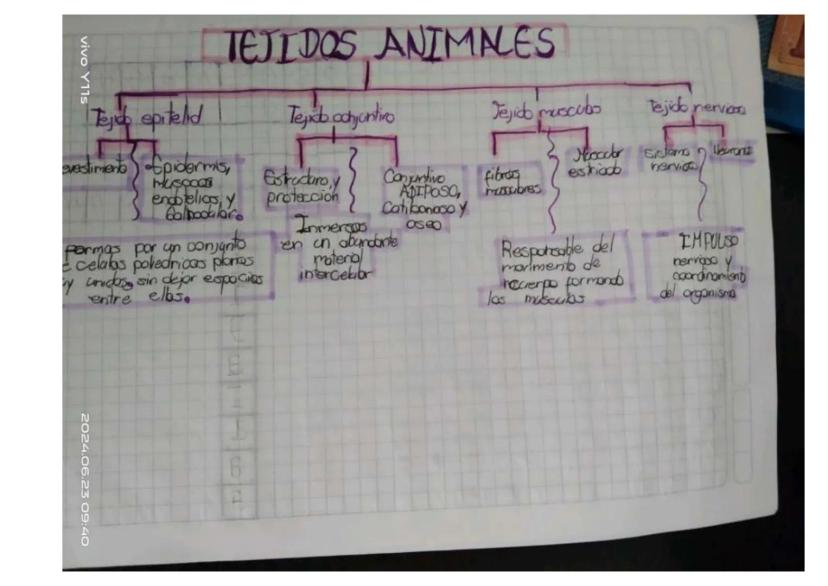 TEJIDOS ANIMALES
Tejido epitelid
Tejido conjuntivo
Tejido musculo
Tejido nervioso
evestimiento
Epidermis,
mucosas
endotelios, y
Estructura, y
protección
Conjuntivo
ADIPOSO,
y
oseo
fibras
musculares
Muscular
estriado
Sistema
nervioso
Neurona
Inmersos
en un abundante
material
intercelular
formas por un conjunto
celulas poliedricas planas
y unidas, sin dejar espacios
entre ellas.
Responsable del
de
formando
los musculos
IMPULSO
nervioso y
del organismo
vivo Y11s
2024.06.23 09:40